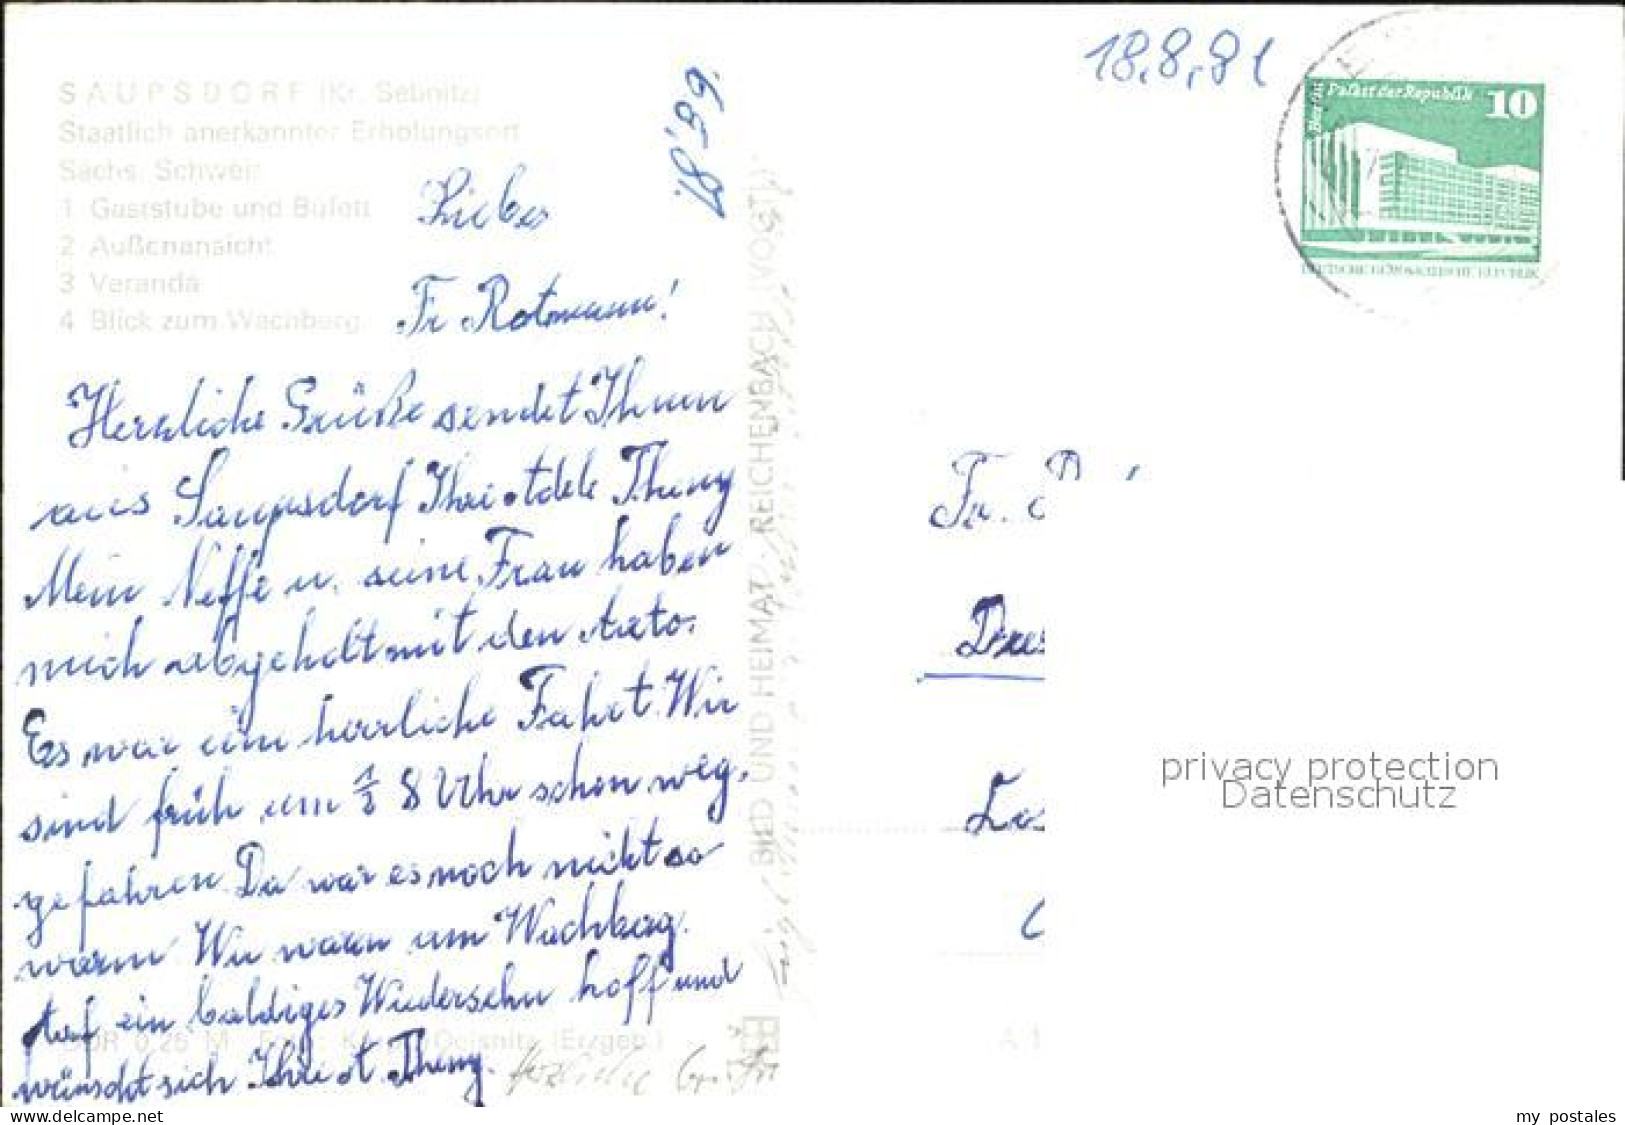 SAUPSDORF (Kr. Sebnitz)
Staatlich anerkannter Erholungsort
Sächs. Schweiz
1 Gaststube und Büfett
2 Außenansicht
3 Veranda
4 Blick zum Wachberg
18.8.81
Berlin Palast der Republik 10
DEUTSCHE DEMOKRATISCHE REPUBLIK
Liebes
Fr Rotmann!
Herzliche Grüße sendet Ihnen
aus Saupsdorf Ihre Adele
Mein Neffe u. seine Frau haben
mich abgeholt mit den Auto.
Es war eine herrliche Fahrt. Wir
sind früh um 1/2 8 Uhr schon weg.
gefahren. Da war es noch nicht so
warm. Wir waren am Wachberg.
Auf ein baldiges Wiedersehn hofft und
wünscht sich Ihre A.
Herzliche Grüße
BILD UND HEIMAT REICHENBACH (VOGTL)
DDR 0,25 M Foto: Oelsnitz (Erzgeb.)
Fr.
A 1
privacy protection
Datenschutz
www.delcampe.net
my_postales